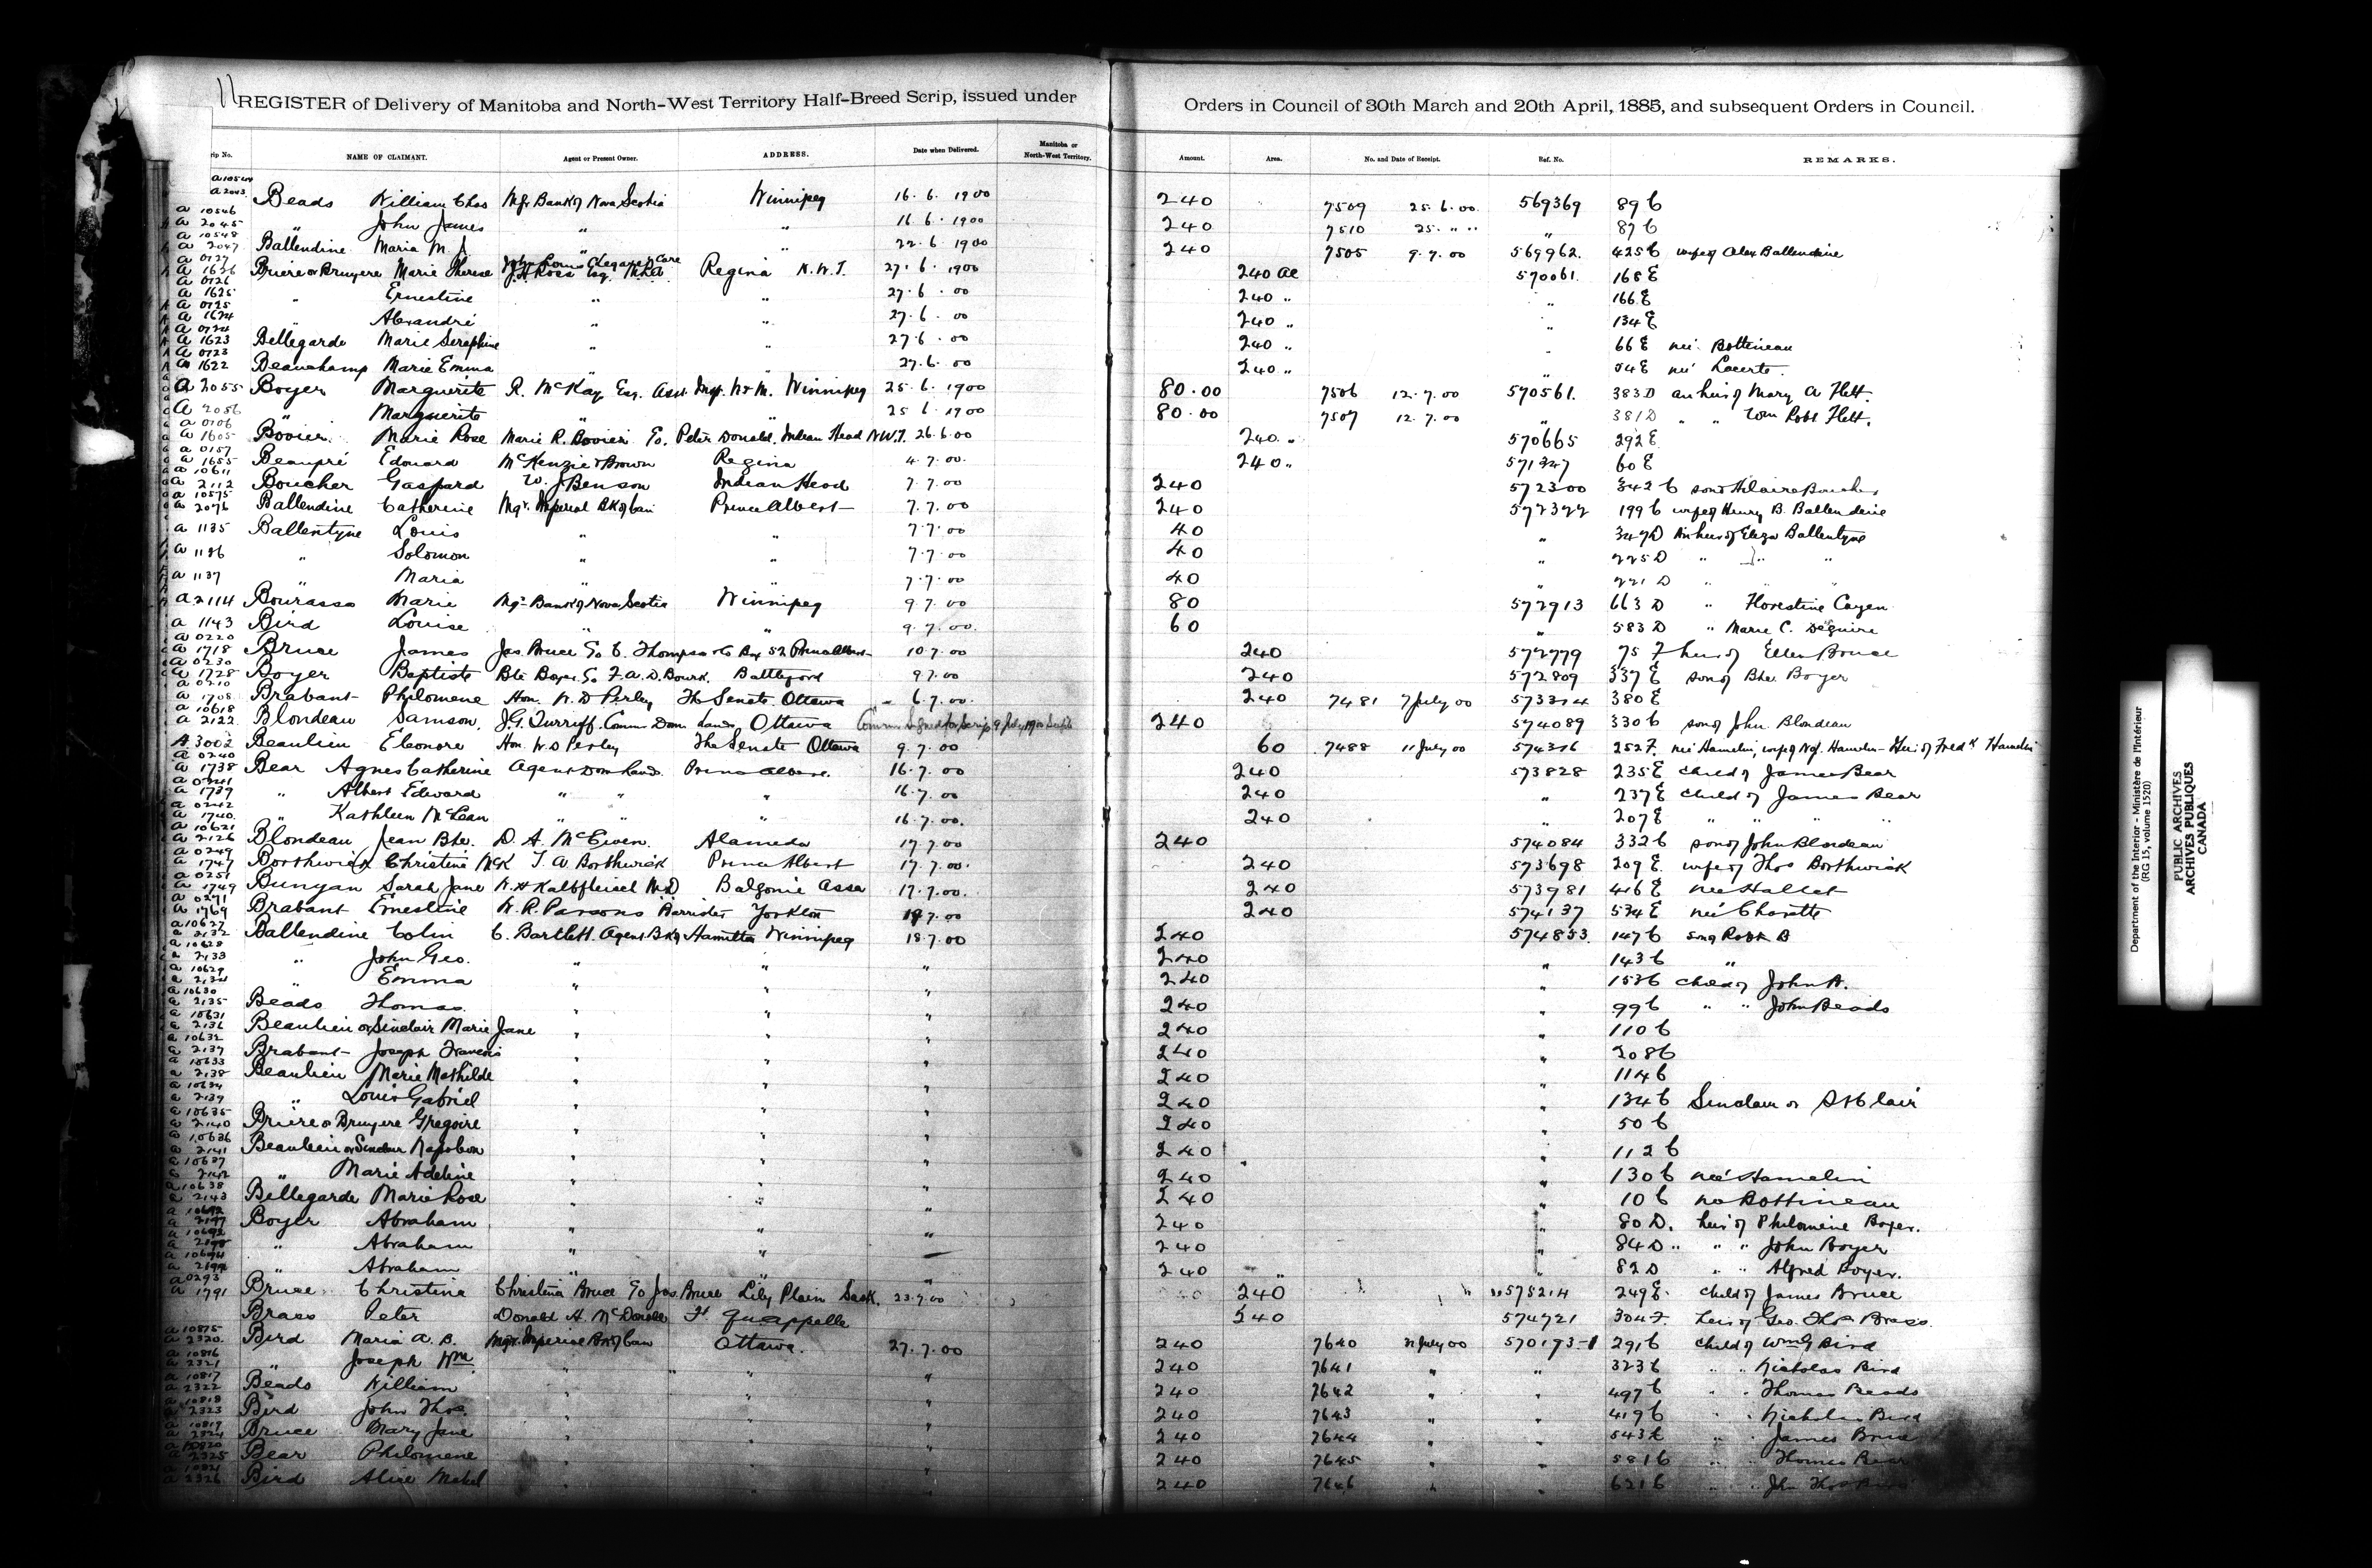 11
REGISTER of Delivery of Manitoba and North-West Territory Half-Breed Scrip, issued under Orders in Council of 30th March and 20th April, 1885, and subsequent Orders in Council.
rip No. NAME OF CLAIMANT. Agent or Present Owner. ADDRESS. Date when Delivered. Manitoba or North-West Territory. Amount. Area. No. and Date of Receipt. Ref. No. REMARKS.
a 2043 Beads William Chas Mgr Bank of Nova Scotia Winnipeg 16.6.1900 240 7509 25.6.00 569369 89 C
a 10546 a 2045 " John James " " 16.6.1900 240 7510 25 " " " 87 C
a 10548 a 2047 Ballendine Maria M. J. " " 22.6.1900 240 7505 9.7.00 569962. 425 C wife of Alex Ballendine
a 0727 a 1626 Briere or Bruyere Marie Therese J. H. Ross Esq. Regina N.W.T. 27.6.1900 240 ac 570061 168 E
a 0726 a 1625 " Ernestine " " 27.6.00 240 " " 166 E
a 0725 a 1624 " Alexandre " " 27.6.00 240 " " 134 E
a 0724 a 1623 Bellegarde Marie Seraphine " " 27.6.00 240 " " 66 E née Bottineau
a 0723 a 1622 Beauchamp Marie Emma " " 27.6.00 240 " " 54 E née Lacerte
a 2055 Boyer Marguerite R. McKay Esq. Asst. Winnipeg 25.6.1900 80.00 7506 12.7.00 570561. 383 D an heir of Mary A Flett.
a 2056 " Marguerite " " 25.6.1900 80.00 7507 12.7.00 " 381 D " " Wm Robt Flett.
a 1605 Bovier Marie Rose Marie R. Bovier Co. Peter Donald, Indian Head N.W.T. 26.6.00 240 " 570665 292 E
a 0157 a 1655 Beaupré Edouard McKenzie & Brown Regina 4.7.00. 240 " 571247 60 E
a 10611 a 2112 Boucher Gaspard W. J. Benson Indian Head 7.7.00 240 572300 342 C son of Hilaire Boucher
a 10575 a 2076 Ballendine Catherine Mgr. Imperial Bk of Can Prince Albert 7.7.00 240 572322 199 C wife of Henry B. Ballendine
a 1135 Ballentyne Louis " " 7.7.00 40 " 347 D An heir of Eliza Ballentyne
a 1136 " Solomon " " 7.7.00 40 " 225 D " " "
a 1137 " Maria " " 7.7.00 40 " 221 D " "
a 2114 Bourassa Marie Mgr Bank of Nova Scotia Winnipeg 9.7.00 80 572913 663 D " Florestine Cayen
a 1143 Bird Louise " " 9.7.00. 60 " 583 D " Marie C. Deguire
a 0220 a 1718 Bruce James Jas. Bruce Co E. Thompson & Co Box 52 Prince Albert 10.7.00 240 572779 75 F heir of Ellen Bruce
a 0230 a 1728 Boyer Baptiste Bte Boyer Co F. A. D. Bourk. Battleford 9.7.00 240 572809 337 E son of Bte. Boyer
a 0210 a 1708 Brabant Philomene Hon. W. D Perley The Senate Ottawa 6.7.00. 240 7481 7 July 00 573314 380 E
a 10618 a 2122 Blondeau Samson. J. G. Turriff. Comm Dom Lands, Ottawa 240 574089 330 C son of John Blondeau
A 3002 Beaulieu Eleonore Hon. W. D Perley The Senate Ottawa 9.7.00 60 7488 11 July 00 574316 252 F. née Hamelin, wife of Nap. Hamelin - Heir of Fredk Hamelin
a 0240 a 1738 Bear Agnes Catherine Agent Dom Lands Prince Albert 16.7.00 240 573828 235 E child of James Bear
a 0241 a 1739 " Albert Edward " " " 16.7.00 240 " 237 E child of James Bear
a 0242 a 1740 " Kathleen McLean " " " 16.7.00. 240 " 207 E " " "
a 10621 a 2126 Blondeau Jean Bte. D. A. McEwen. Alameda 17.7.00 240 574084 332 C son of John Blondeau
a 0249 a 1747 Borthwick Christina McK T. A Borthwick Prince Albert 17.7.00. 240 573698 209 E wife of Thos Borthwick
a 0251 a 1749 Bunyan Sarah Jane W. H Kalbfleisch M.D Balgonie Assa 17.7.00. 240 573981 416 E née Hallet
a 0271 a 1769 Brabant Ernestine W. R. Parsons Barrister Yorkton 17.7.00 240 574137 534 E née Charette
a 10627 a 2132 Ballendine Colin C. Bartlett. Agent Bk of Hamilton Winnipeg 18.7.00 240 574853 147 C son of Robt B
a 10628 a 2133 " John Geo. " " " 240 " 143 C "
a 10629 a 2134 " Emma " " " 240 " 153 C child of John A.
a 10630 a 2135 Beads Thomas " " " 240 " 99 C " " John Beads
a 10631 a 2136 Beaulieu or Sinclair Marie Jane " " " 240 " 110 C
a 10632 a 2137 Brabant Joseph Francois " " " 240 " 208 C
a 10633 a 2138 Beaulieu Marie Mathilde " " " 240 " 114 C
a 10634 a 2139 " Louis Gabriel " " " 240 " 134 C Sinclair or St Clair
a 10635 a 2140 Briere or Bruyere Gregoire " " " 240 " 50 C
a 10636 a 2141 Beaulieu or Sinclair Napoleon " " " 240 " 112 C
a 10637 a 2142 " Marie Adeline " " " 240 " 130 C née Hamelin
a 10638 a 2143 Bellegarde Marie Rose " " " 240 " 10 C née Bottineau
Boyer Abraham " " " 240 " 80 D. heir of Philomene Boyer.
" Abraham " " 240 " 84 D " " " John Boyer
" Abraham " " " 240 " 82 D " " Alfred Boyer.
a 0293 a 1791 Bruce Christina Christina Bruce Co Jas. Bruce Lily Plain Sask. 23.7.00 240 575214 249 E. child of James Bruce
Brass Peter Donald H. McDonald Ft Quappelle 240 574721 304 F. heir of Geo. Thos Brass.
a 10815 a 2320 Bird Maria A. B. Mgr. Imperial Bk of Can Ottawa. 27.7.00 240 7640 31 July 00 570173-1 291 C child of Wm G Bird
a 10816 a 2321 " Joseph Wm " " " 240 7641 " " 323 C " " Nicholas Bird
a 10817 a 2322 Beads William " " " 240 7642 " " 497 C " " Thomas Beads
a 10818 a 2323 Bird John Thos. " " " 240 7643 " " 419 C " " Nicholas Bird
a 10819 a 2324 Bruce Mary Jane " " " 240 7644 " " 543 C " " James Bruce
a 10820 a 2325 Bear Philomene " " " 240 7645 " " 581 C " " Thomas Bear
a 10821 a 2326 Bird Alice Mabel " " " 240 7646 " " 621 C " " Jhn Thos Bird
Department of the Interior - Ministère de l'Intérieur
(RG 15, volume 1520)
PUBLIC ARCHIVES
ARCHIVES PUBLIQUES
CANADA